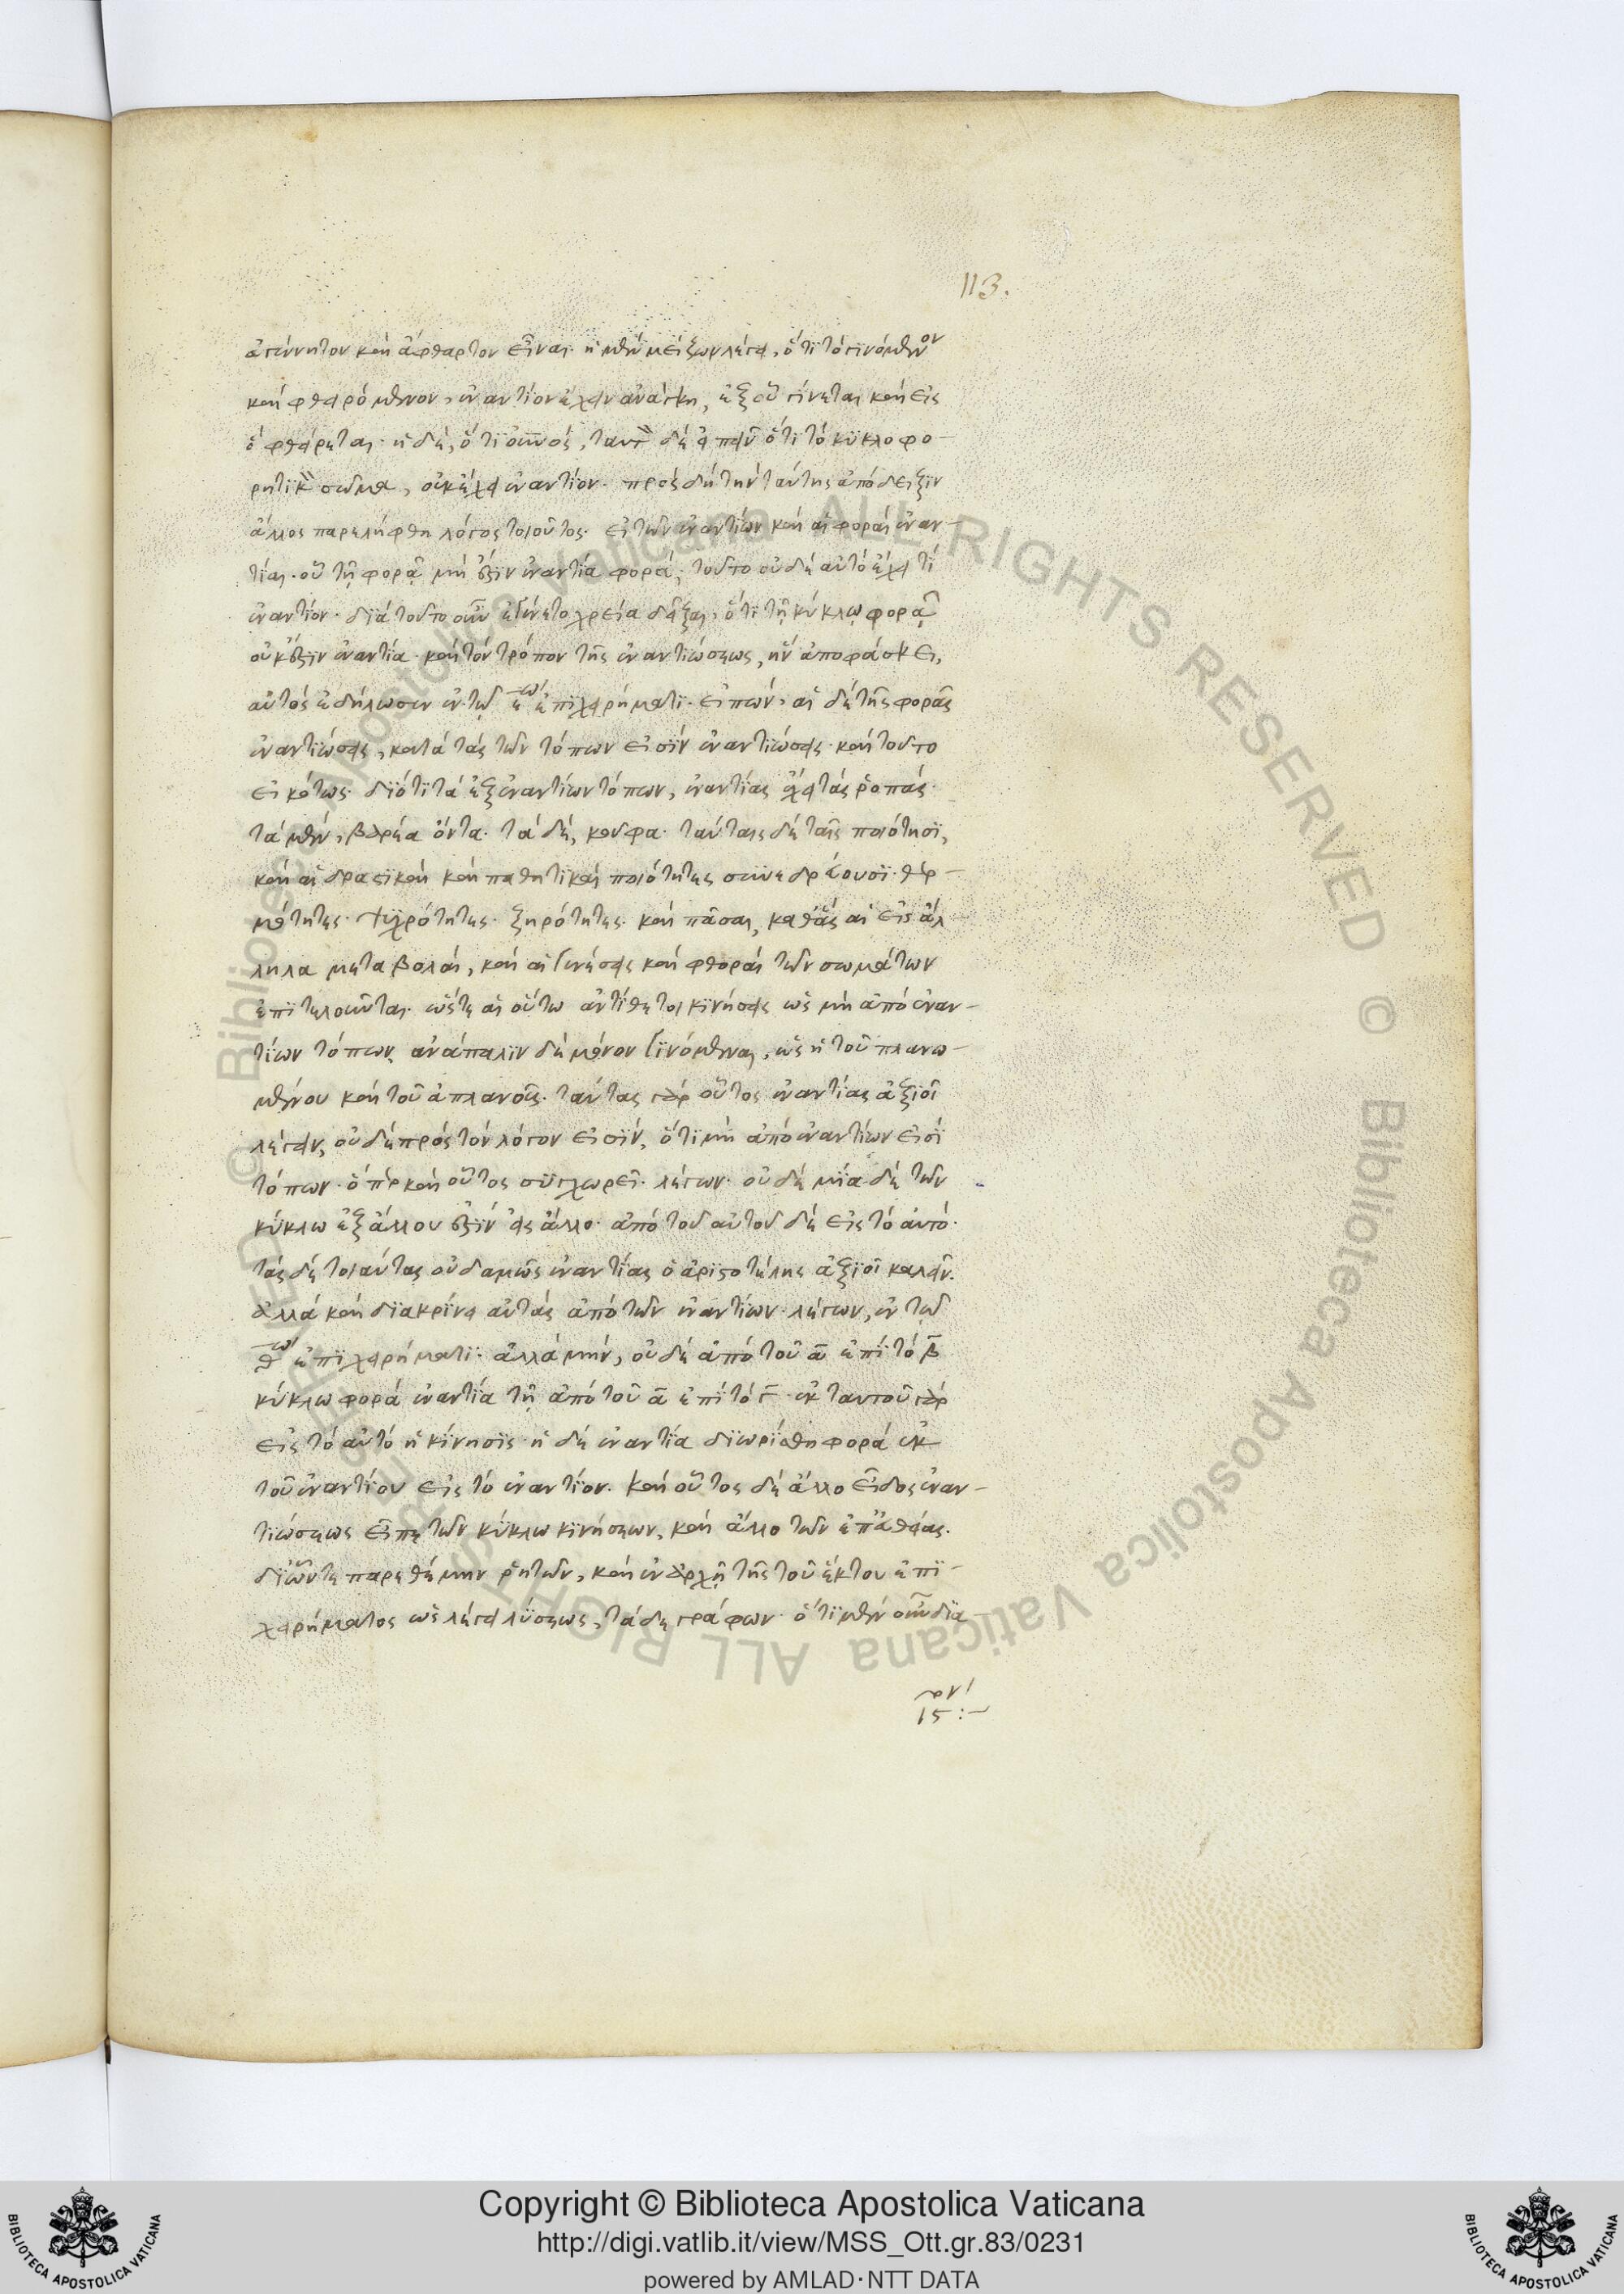 113.
ἀγέννητον καὶ ἄφθαρτον εἶναι· ἡ μὲν μείζων λέγει, ὅτι τὸ γινόμενον
καὶ φθειρόμενον, ἐναντίον ἔχειν ἀνάγκη, ἐξ οὗ γίνεται καὶ εἰς
ὃ φθείρεται· ἡ δὲ, ὅτι ταὐτὸν δὲ εἰπεῖν ὅτι τὸ κυκλοφο-
ρητικὸν σῶμα, οὐκ ἔχει ἐναντίον· πρὸς δὴ τὴν ταύτης ἀπόδειξιν
ἄλλος παρελήφθη λόγος τοιοῦτος· εἰ τῶν ἐναντίων καὶ αἱ φοραὶ ἐναν-
τίαι· οὗ τῇ φορᾷ μὴ ἔστιν ἐναντία φορά, τοῦτο οὐδὲ αὐτὸ ἔχει τί
ἐναντίον· διὰ τοῦτο οὖν ἐγένετο χρεία δεῖξαι, ὅτι τῇ κύκλῳ φορᾷ
οὐκ ἔστιν ἐναντία· καὶ τὸν τρόπον τῆς ἐναντιώσεως, ἣν ἀποφάσκει,
αὐτὸς ἐδήλωσεν ἐν τῷ ε ῳ ἐπιχειρήματι· εἰπών· αἱ δὲ τῆς φορᾶς
ἐναντιώσεις, κατὰ τὰς τῶν τόπων εἰσὶν ἐναντιώσεις· καὶ τοῦτο
εἰκότως· διότι τὰ ἐξ ἐναντίων τόπων, ἐναντίας ἔχει τὰς ῥοπάς·
τὰ μὲν, βαρέα ὄντα· τὰ δὲ, κοῦφα· ταύταις δὲ ταῖς ποιότησι,
καὶ αἱ δραστικαὶ καὶ παθητικαὶ ποιότητες συνεδρεύουσι· θερ-
μότητες· ψυχρότητες· ξηρότητες· καὶ πᾶσαι, καθ' ἃς αἱ εἰς ἄλ
ληλα μεταβολαὶ, καὶ αἱ γενέσεις καὶ φθοραὶ τῶν σωμάτων
ἐπιτελοῦνται· ὥστε αἱ οὕτω ἀντίθετοι κινήσεις ὡς μὴ ἀπὸ ἐναν-
τίων τόπων, ἀνάπαλιν δὲ μόνον γινόμεναι, ὡς ἡ τοῦ πλανω-
μένου καὶ τοῦ ἀπλανοῦς· ταύτας γὰρ οὗτος ἐναντίας ἀξιοῖ
λέγειν, οὐδὲ πρὸς τὸν λόγον εἰσὶν, ὅτι μὴ ἀπὸ ἐναντίων εἰσὶ
τόπων· ὅπερ καὶ οὗτος συγχωρεῖ· λέγων· οὐδὲ μία δὲ τῶν
κύκλω ἐξ ἄλλου ἐστὶν εἰς ἄλλο· ἀπὸ τοῦ αὐτοῦ δὲ εἰς τὸ αὐτό·
τὰς δὲ τοιαύτας οὐδαμῶς ἐναντίας ὁ ἀριστοτέλης ἀξιοῖ καλεῖν·
ἀλλὰ καὶ διακρίνει αὐτὰς ἀπὸ τῶν ἐναντίων· λέγων, ἐν τῷ
θ ῳ ἐπιχειρήματι· ἀλλὰ μὴν, οὐδὲ ἀπὸ τοῦ α ἐπὶ τὸ β
κύκλω φορὰ ἐναντία τῇ ἀπὸ τοῦ α ἐπὶ τὸ γ· ἐκ ταυτοῦ γὰρ
εἰς τὸ αὐτὸ ἡ κίνησις· ἡ δὲ ἐναντία διωρίσθη φορὰ ἐκ
τοῦ ἐναντίου εἰς τὸ ἐναντίον· καὶ οὗτος δὲ ἄλλο εἶδος ἐναν-
τιώσεως εἶπε τῶν κύκλω κινήσεων, καὶ ἄλλο τῶν ἐπ' εὐθείας·
δι' ὧν τε παρεθέμην ῥητῶν, καὶ ἐν ἀρχῇ τῆς τοῦ ἕκτου ἐπι-
χειρήματος ὡς λέγει λύσεως, τάδε γράφων· ὅτι μὲν οὖν δια-
15:-